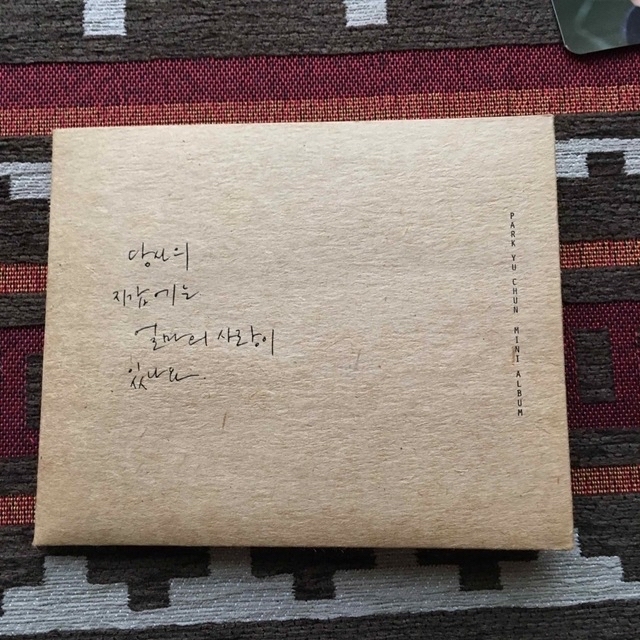 당신의
지갑에는
얼마의 사랑이
있나요
PARK YU CHUN MINI ALBUM